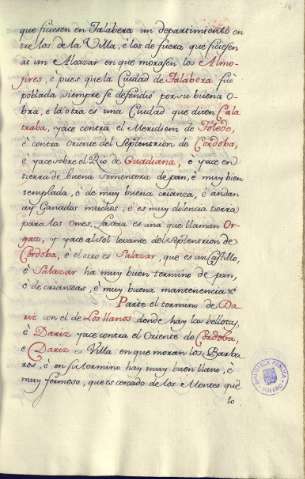 que fuesen en Talabera un departimiento en
tre los de la Villa, è los de fuera, que ficiesen
ai un Alcazar en que morasen los Almo-
jires, è pues que la Ciudad de Talabera fue
poblada siempre se defendio por su buena O-
bra, è la otra es una Ciudad que dicen Cala
traba, yace contra el Meridiem de Toledo,
è contra Oriente del Septentrion de Cordoba,
è yace sobre el Rio de Guadiana, è yace en
tierra de buena sementera de pan, è muy bien
templada, è de muy buena crianza, è andan
ay Ganados muchos, è es muy tierra
para los la otra es una que llaman Or
gaz, è yace al sol levante del Septentrion de
Cordoba, è el otro es Salazar, que es un Castillo,
è Salazar ha muy buen termino de pan,
è de crianzas, è muy buena mantenencia &
Parte el termino de Da-
riz con el de Los llanos donde hay las bellotas,
è Dariz yace contra el Oriente de Cordoba,
è Dariz es Villa en que moran los Barba-
ros, è en su termino hay muy buen llano, è
muy fermoso, que es cercado de los Montes què
lo